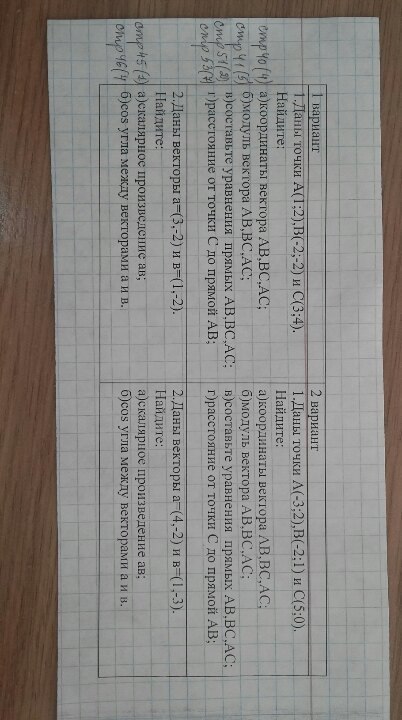 1 вариант
1.Даны точки А(1;2),В(-2;-2) и С(3;4).
Найдите:
а)координаты вектора АВ,ВС,АС;
б)модуль вектора АВ,ВС,АС;
в)составьте уравнения прямых АВ,ВС,АС;
г)расстояние от точки С до прямой АВ;
2.Даны векторы а=(3,-2) и в=(1,-2).
Найдите:
а)скалярное произведение ав;
б)cos угла между векторами а и в.
2 вариант
1.Даны точки А(-3;2),В(-2;1) и С(5;0).
Найдите:
а)координаты вектора АВ,ВС,АС;
б)модуль вектора АВ,ВС,АС;
в)составьте уравнения прямых АВ,ВС,АС;
г)расстояние от точки С до прямой АВ;
2.Даны векторы а=(4,-2) и в=(1,-3).
Найдите:
а)скалярное произведение ав;
б)cos угла между векторами а и в.
стр 40 (4)
стр 41 (5)
стр 51 (2)
стр 53 (7)
стр 45 (3)
стр 46 (4